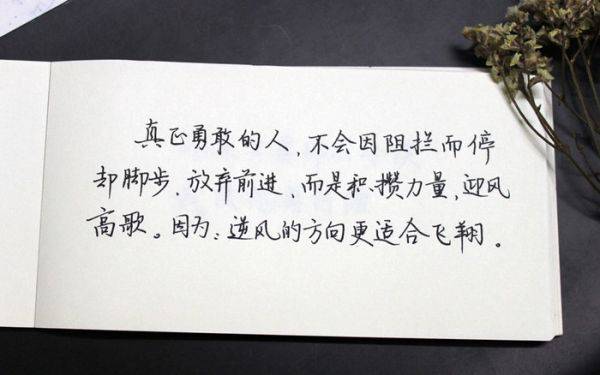 真正勇敢的人，不会因阻拦而停
却脚步、放弃前进、而是积攒力量，迎风
高歌。因为：逆风的方向更适合飞翔。